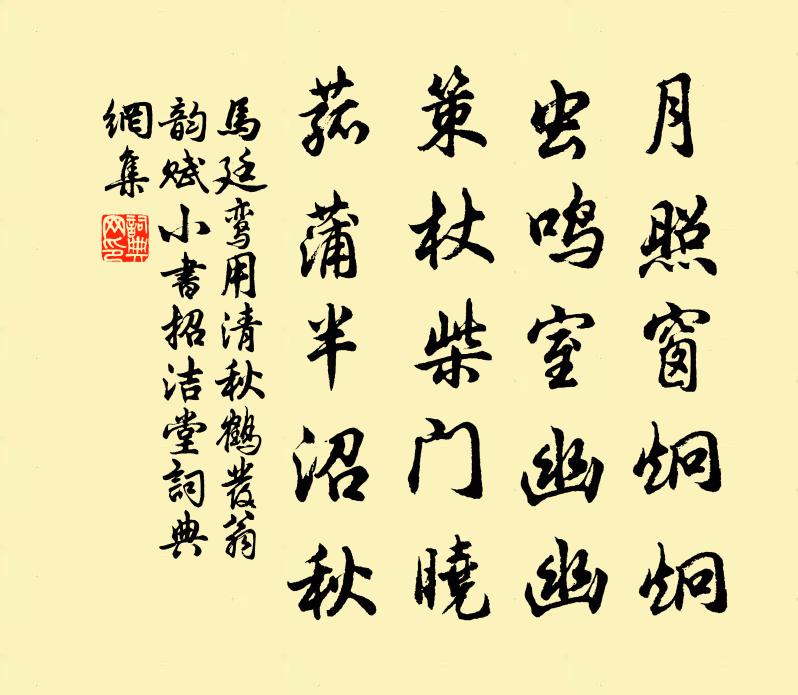 月照窗炯炯
虫鸣室幽幽
策杖柴门曉
菰蒲半沼秋
馬廷鸾用清秋鶴發翁
韵赋小書招洁堂詞典
網集
詞典
网印